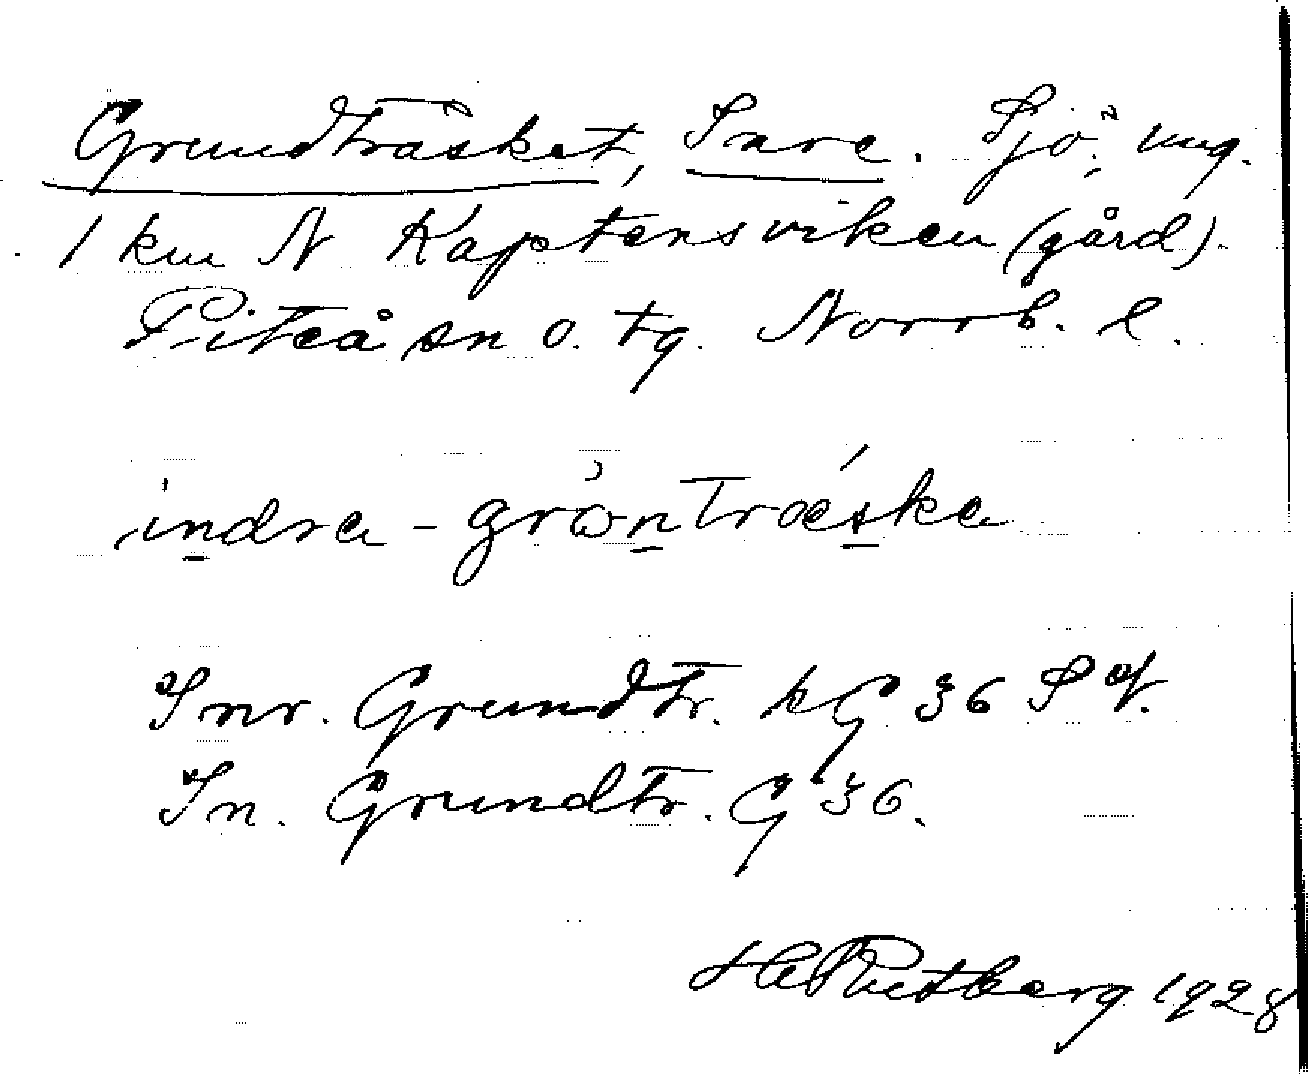 Grundträsket, Inre. Sjö, ung.
1 km N Kaptensviken (gård).
Piteå sn o. tg. Norrb. l.
indra-grönträska
Inr. Grundtr. kG 36 SV.
In. Grundtr. G 36.
1928